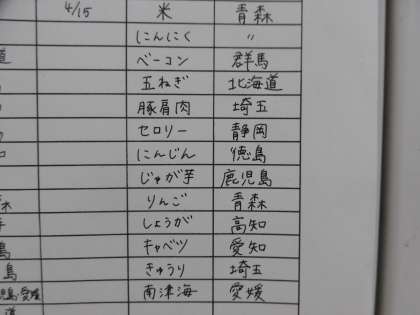 4/15 米 青森
にんにく 〃
道 ベーコン 群馬
五ねぎ 北海道
豚肩肉 埼玉
セロリー 静岡
にんじん 徳島
じゃが芋 鹿児島
りんご 青森
しょうが 高知
キャベツ 愛知
島 きゅうり 埼玉
児島・愛媛 南津海 愛媛
道